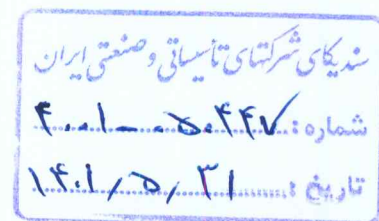 سندیکای شرکتهای تأسیساتی و صنعتی ایران
شماره: ۴۰۰۱-۵۰۴۴۷
تاریخ: ۱۴۰۱/۵/۳۱